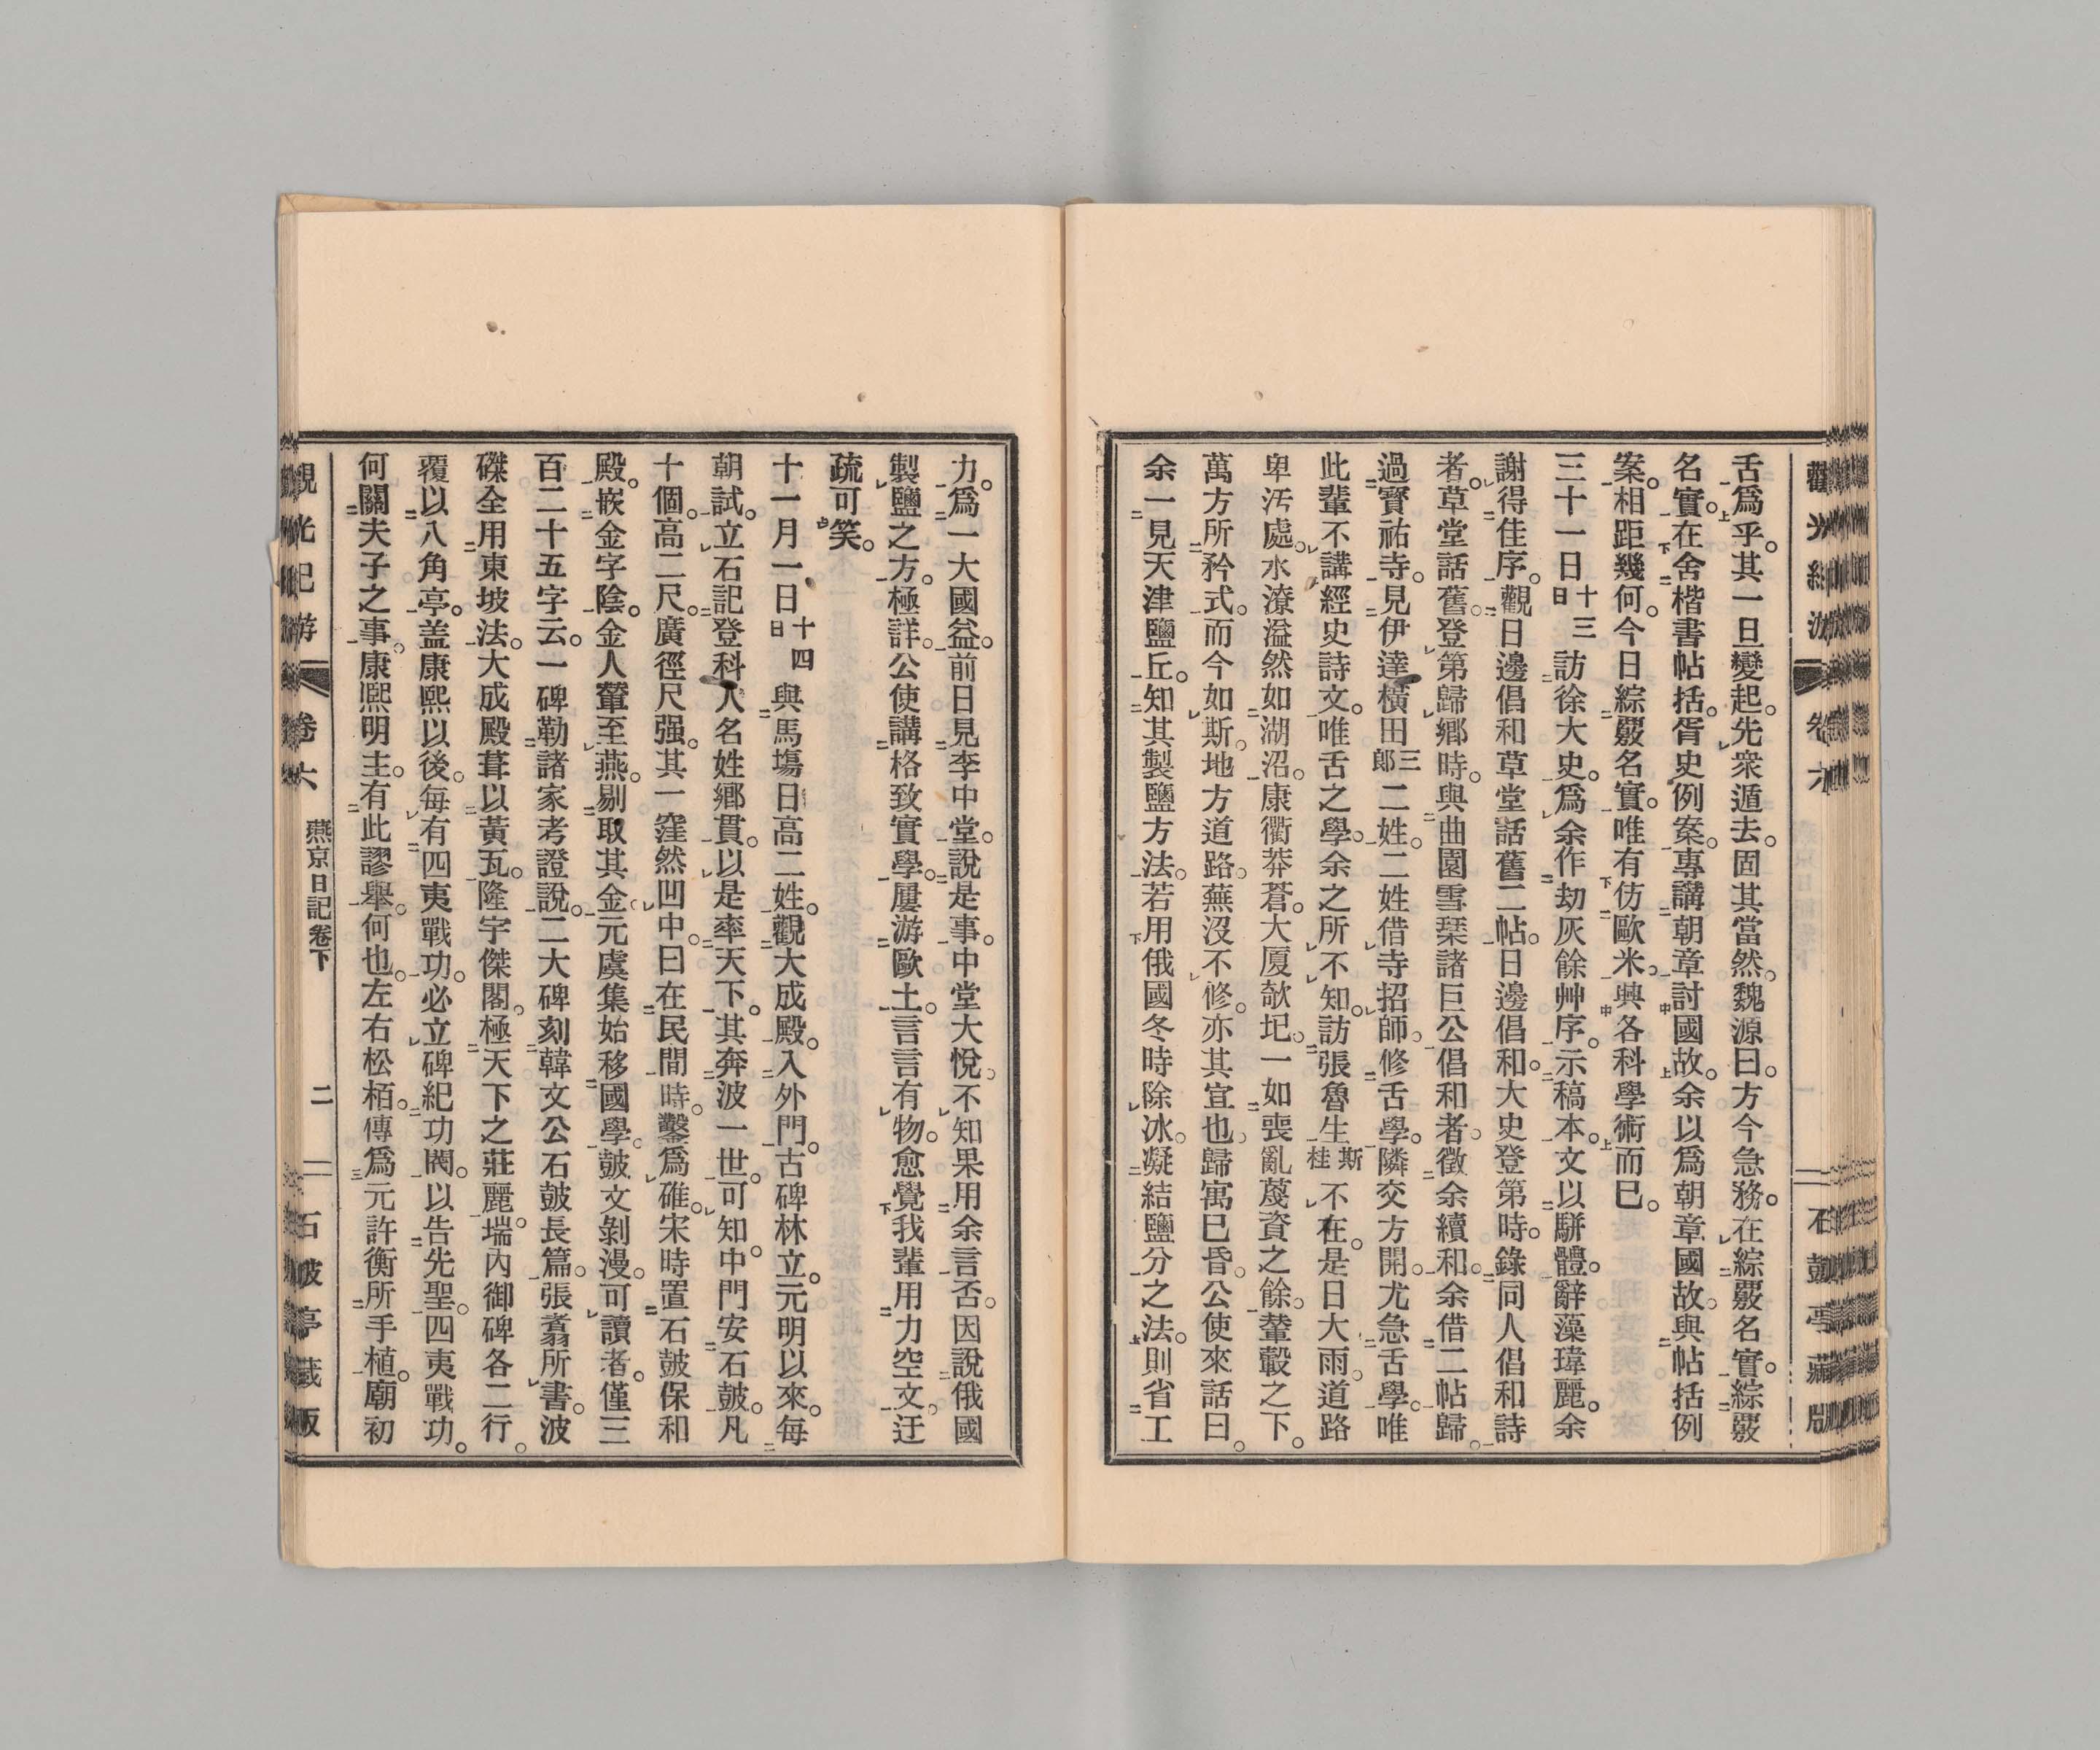 舌爲乎。其一旦變起。先衆遁去。固其當然。魏源曰。方今急務。在綜覈名實。綜覈
名實。在舍楷書帖括。胥史例案。專講朝章討國故。余以爲朝章國故。與帖括例
案。相距幾何。今日綜覈名實。唯有仿歐米。興各科學術而已。
三十一日十三日訪徐大史。爲余作劫灰餘艸序。示稿本。文以駢體。辭藻瑋麗。余
謝得佳序。觀日邊倡和草堂話舊二帖。日邊倡和。大史登第時。錄同人倡和詩
者。草堂話舊。登第歸鄉時。與曲園雪琹諸巨公倡和者。徵余續和。余借二帖歸。
過寶祐寺。見伊達橫田三郎二姓。二姓借寺招師。修舌學。隣交方開。尤急舌學。唯
此輩不講經史詩文。唯舌之學。余之所不知。訪張魯生斯桂不在。是日大雨。道路
卑汚處。水潦溢然如湖沼。康衢莽蒼。大厦欹圯。一如喪亂蔑資之餘。輦轂之下。
萬方所矜式。而今如斯。地方道路。蕪沒不修。亦其宜也。歸寓已昏。公使來話曰。
余一見天津鹽丘。知其製鹽方法。若用俄國冬時除冰。凝結鹽分之法。則省工
力。爲一大國益。前日見李中堂。說是事。中堂大悅。不知果用余言否。因說俄國
製鹽之方。極詳。公使講格致實學。屢游歐土。言言有物。愈覺我輩用力空文。迂
疏可笑。
十一月一日十四日與馬塲日高二姓。觀大成殿。入外門。古碑林立。元明以來。每
朝試。立石記登科人名姓鄉貫。以是率天下。其奔波一世。可知。中門安石皷。凡
十個。高二尺。廣徑尺强。其一窪然凹中。曰在民間時。鑿爲碓。宋時置石皷保和
殿。嵌金字陰。金人輦至燕。剔取其金。元虞集始移國學。皷文剝漫。可讀者。僅三
百二十五字云。一碑勒諸家考證說。二大碑刻韓文公石皷長篇。張翥所書。波
磔全用東坡法。大成殿葺以黃瓦。隆宇傑閣。極天下之莊麗。墀內御碑各二行。
覆以八角亭。盖康熙以後。每有四夷戰功。必立碑紀功閥。以告先聖。四夷戰功。
何關夫子之事。康熙明主。有此謬舉。何也。左右松栢。傳爲元許衡所手植。廟初
觀光紀游 卷六 燕京日記卷下 二 石皷亭藏版